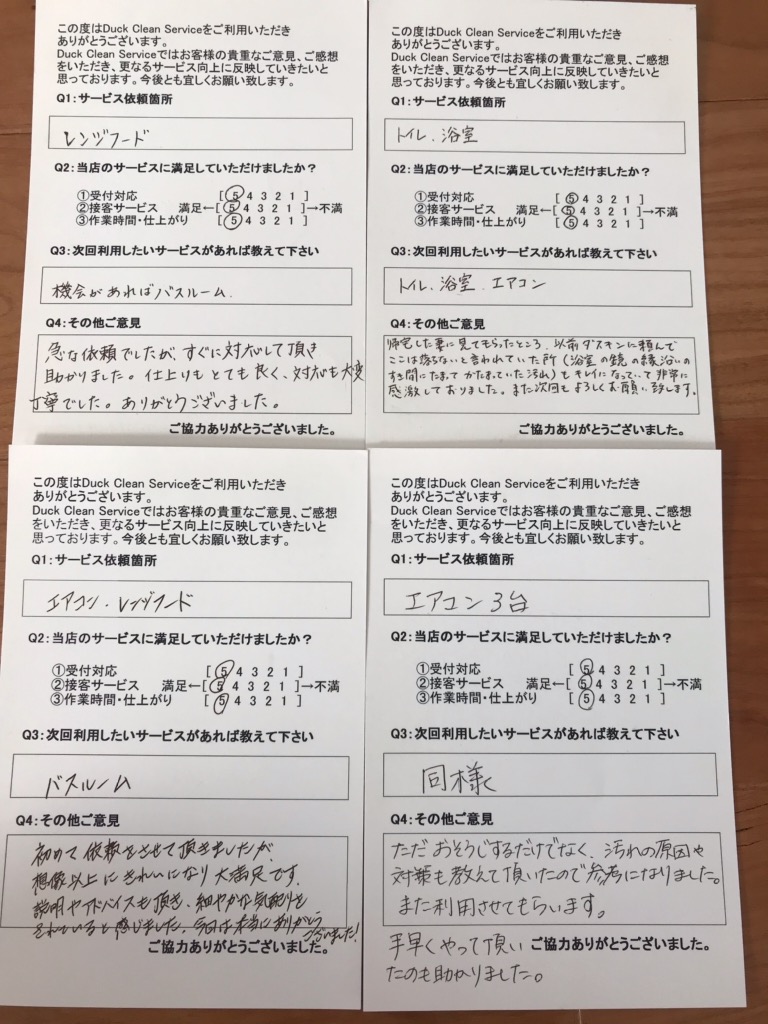 この度はDuck Clean Serviceをご利用いただき
ありがとうございます。
Duck Clean Serviceではお客様の貴重なご意見、ご感想
をいただき、更なるサービス向上に反映していきたいと
思っております。今後とも宜しくお願い致します。
Q1:サービス依頼箇所
レンジフード
Q2:当店のサービスに満足していただけましたか？
①受付対応 [ 5 4 3 2 1 ]
②接客サービス 満足←[ 5 4 3 2 1 ]→不満
③作業時間・仕上がり [ 5 4 3 2 1 ]
Q3:次回利用したいサービスがあれば教えて下さい
機会があればバスルーム.
Q4:その他ご意見
急な依頼でしたが、すぐに対応して頂き
助かりました。仕上りもとても良く、対応も大変
丁寧でした。ありがとうございました。
ご協力ありがとうございました。
この度はDuck Clean Serviceをご利用いただき
ありがとうございます。
Duck Clean Serviceではお客様の貴重なご意見、ご感想
をいただき、更なるサービス向上に反映していきたいと
思っております。今後とも宜しくお願い致します。
Q1:サービス依頼箇所
トイレ、浴室
Q2:当店のサービスに満足していただけましたか？
①受付対応 [ 5 4 3 2 1 ]
②接客サービス 満足←[ 5 4 3 2 1 ]→不満
③作業時間・仕上がり [ 5 4 3 2 1 ]
Q3:次回利用したいサービスがあれば教えて下さい
トイレ、浴室、エアコン
Q4:その他ご意見
帰宅した妻に見てもらったところ、以前ダスキンに頼んで
ここは落ちないと言われていた所（浴室の鏡の縁沿いの
すき間にたまってかたまっていた汚れ）もキレイになっていて非常に
感激しておりました。また次回もよろしくお願い致します。
ご協力ありがとうございました。
この度はDuck Clean Serviceをご利用いただき
ありがとうございます。
Duck Clean Serviceではお客様の貴重なご意見、ご感想
をいただき、更なるサービス向上に反映していきたいと
思っております。今後とも宜しくお願い致します。
Q1:サービス依頼箇所
エアコン・レンジフード
Q2:当店のサービスに満足していただけましたか？
①受付対応 [ 5 4 3 2 1 ]
②接客サービス 満足←[ 5 4 3 2 1 ]→不満
③作業時間・仕上がり [ 5 4 3 2 1 ]
Q3:次回利用したいサービスがあれば教えて下さい
バスルーム
Q4:その他ご意見
初めて依頼をさせて頂きましたが、
想像以上にきれいになり大満足です。
説明やアドバイスも頂き、細やかな気配りを
されていると感じました。今日は本当にありがとう
ございました!
ご協力ありがとうございました。
この度はDuck Clean Serviceをご利用いただき
ありがとうございます。
Duck Clean Serviceではお客様の貴重なご意見、ご感想
をいただき、更なるサービス向上に反映していきたいと
思っております。今後とも宜しくお願い致します。
Q1:サービス依頼箇所
エアコン3台
Q2:当店のサービスに満足していただけましたか？
①受付対応 [ 5 4 3 2 1 ]
②接客サービス 満足←[ 5 4 3 2 1 ]→不満
③作業時間・仕上がり [ 5 4 3 2 1 ]
Q3:次回利用したいサービスがあれば教えて下さい
同様
Q4:その他ご意見
ただおそうじするだけでなく、汚れの原因や
対策も教えて頂いたので参考になりました。
また利用させてもらいます。
手早くやって頂い
たのも助かりました。
ご協力ありがとうございました。